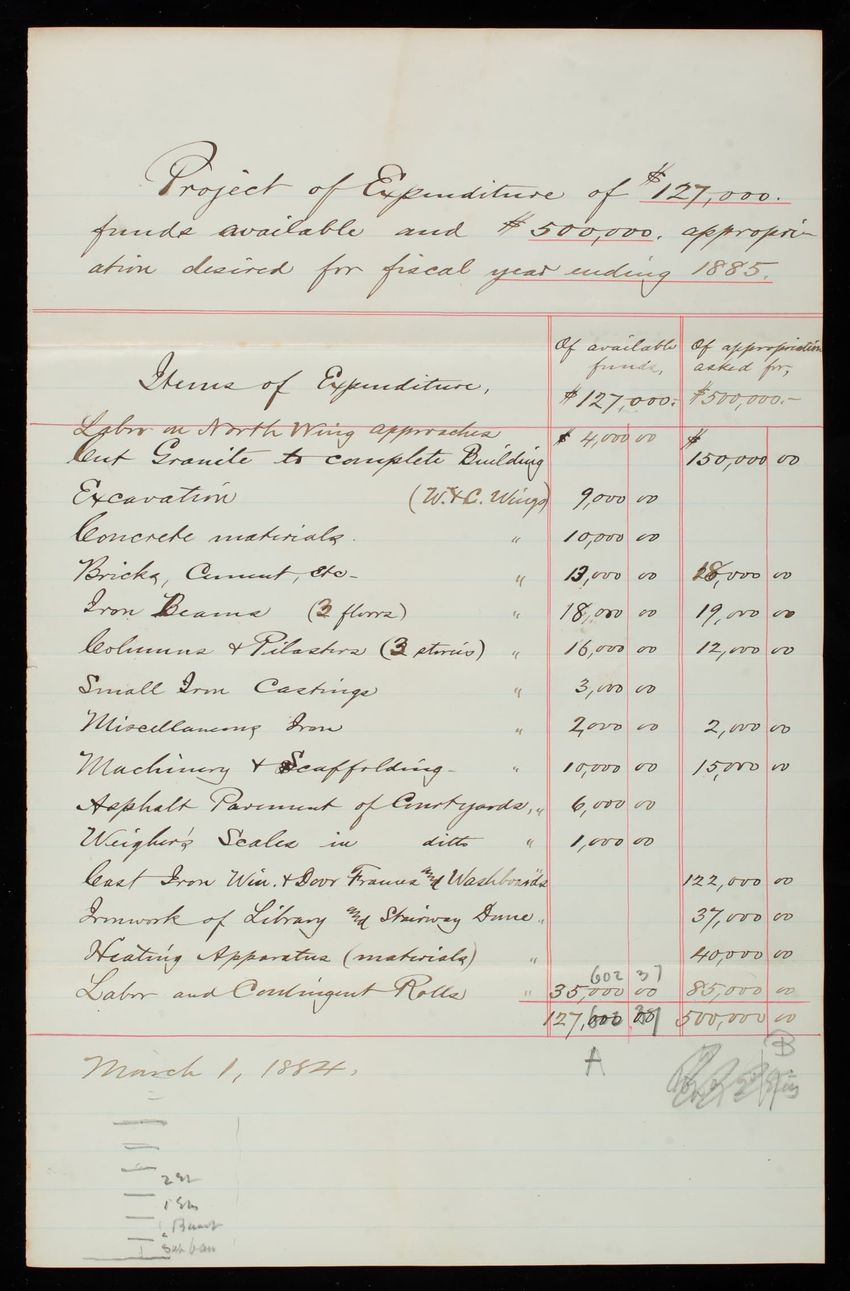 Project of Expenditure of $127,000.
funds available and $500,000. appropri-
ation desired for fiscal year ending 1885.
Items of Expenditure,
Of available funds, $127,000.-
Of appropriation asked for, $500,000.-
Labor on North Wing approaches $ 4,000 00 $
Cut Granite to complete Building 150,000 00
Excavation (W. & C. Wings) 9,000 00
Concrete materials. " 10,000 00
Bricks, Cement, etc- " 13,000 00 18,000 00
Iron Beams (3 floors) " 18,000 00 19,000 00
Columns & Pilasters (3 stories) " 16,000 00 12,000 00
Small Iron Castings " 3,000 00
Miscellaneous Iron " 2,000 00 2,000 00
Machinery & Scaffolding- " 10,000 00 15,000 00
Asphalt Pavement of Courtyards, " 6,000 00
Weigher's Scales in ditto " 1,000 00
Cast Iron Win. & Door Frames and Washboards " 122,000 00
Ironwork of Library and Stairway Dome " 37,000 00
Heating Apparatus (materials) " 40,000 00
602 37
Labor and Contingent Rolls " 35,000 00 85,000 00
127,602 37 500,000 00
A B
March 1, 1884.
2 St
1 St
Basmt
Sub bas